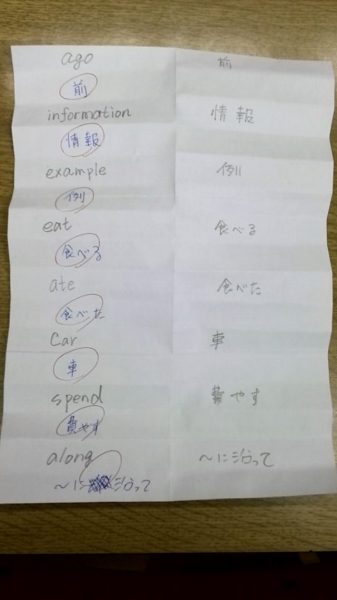 ago 前
前
information 情報
情報
example 例
例
eat 食べる
食べる
ate 食べた
食べた
Car 車
車
spend 費やす
費やす
along ～に沿って
～に沿って